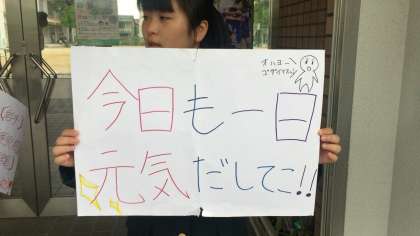 オハヨー
ゴザイマスッ
今日も一日
元気だしてこ!!